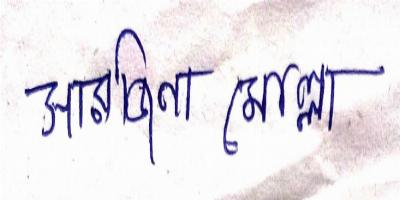 সারজিনা মোল্লা